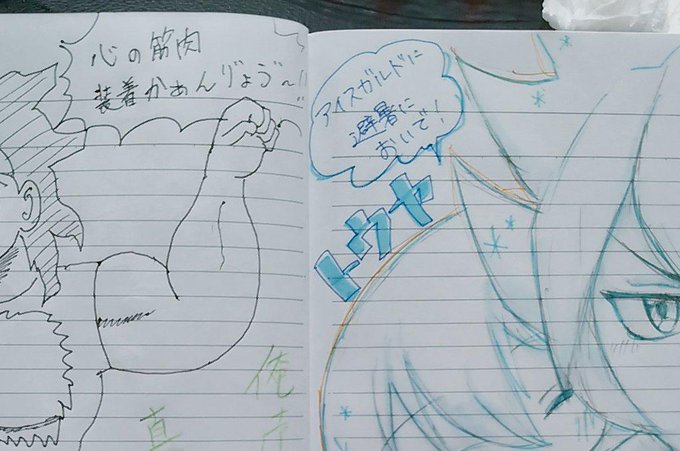 心の筋肉
装着かあんりょうぅ~!!
アイスガルドに
避暑に
おいで!
トウヤ
真